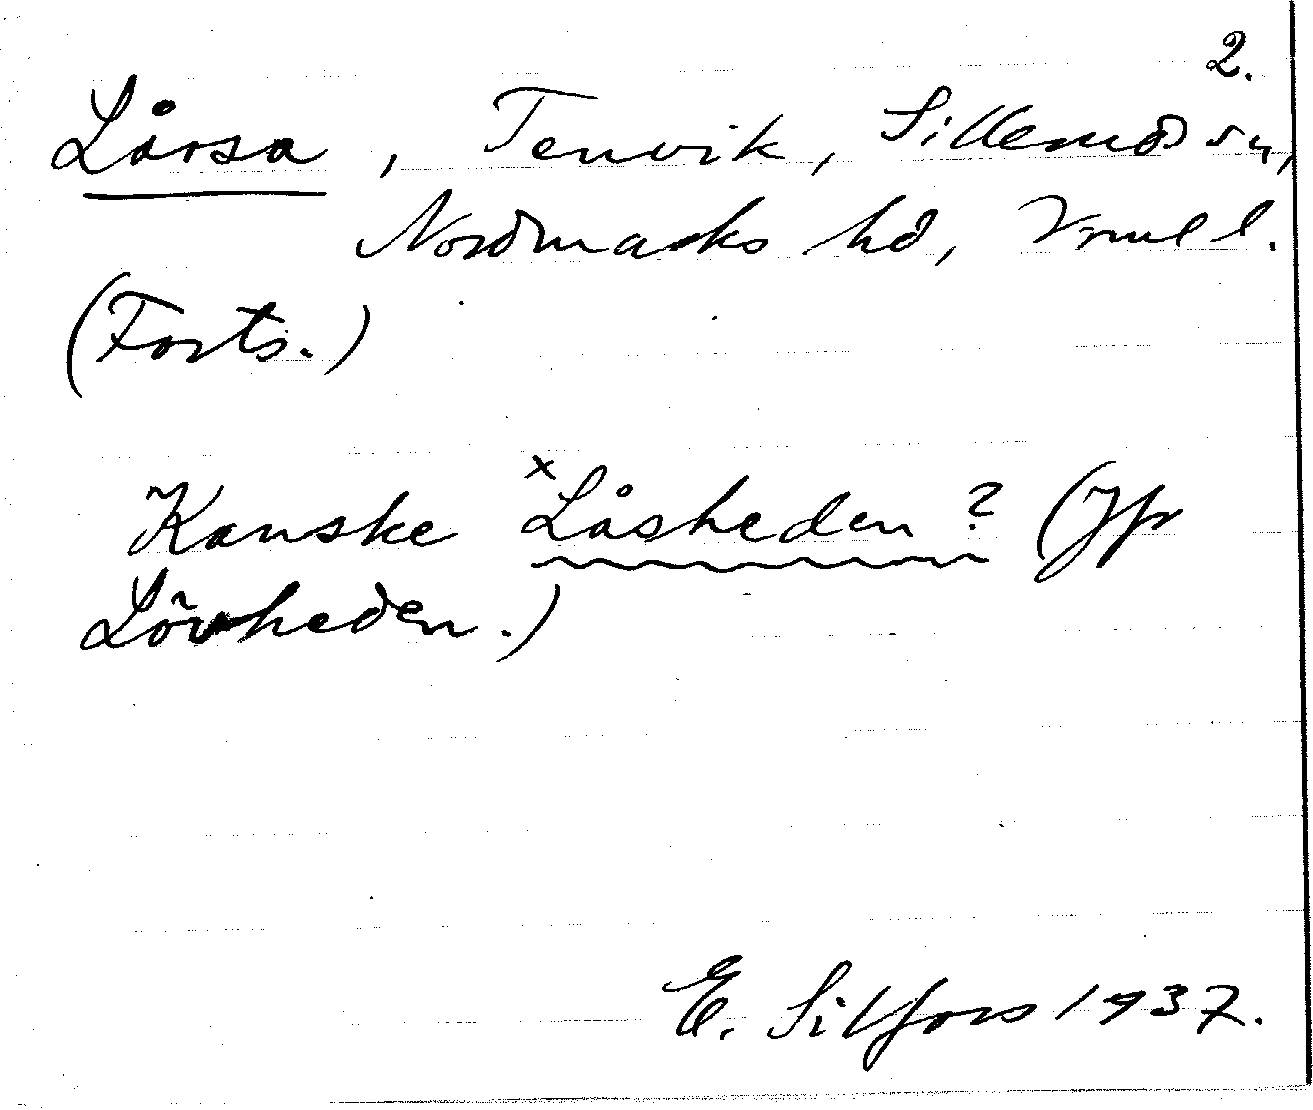 2.
Låssa, Tenvik, Silleruds sn,
Nordmarks hd, Vrml l.
(Forts.)
Kanske ˣLåsheden? (Jfr
Lövheden.)
E. Silfors 1937.